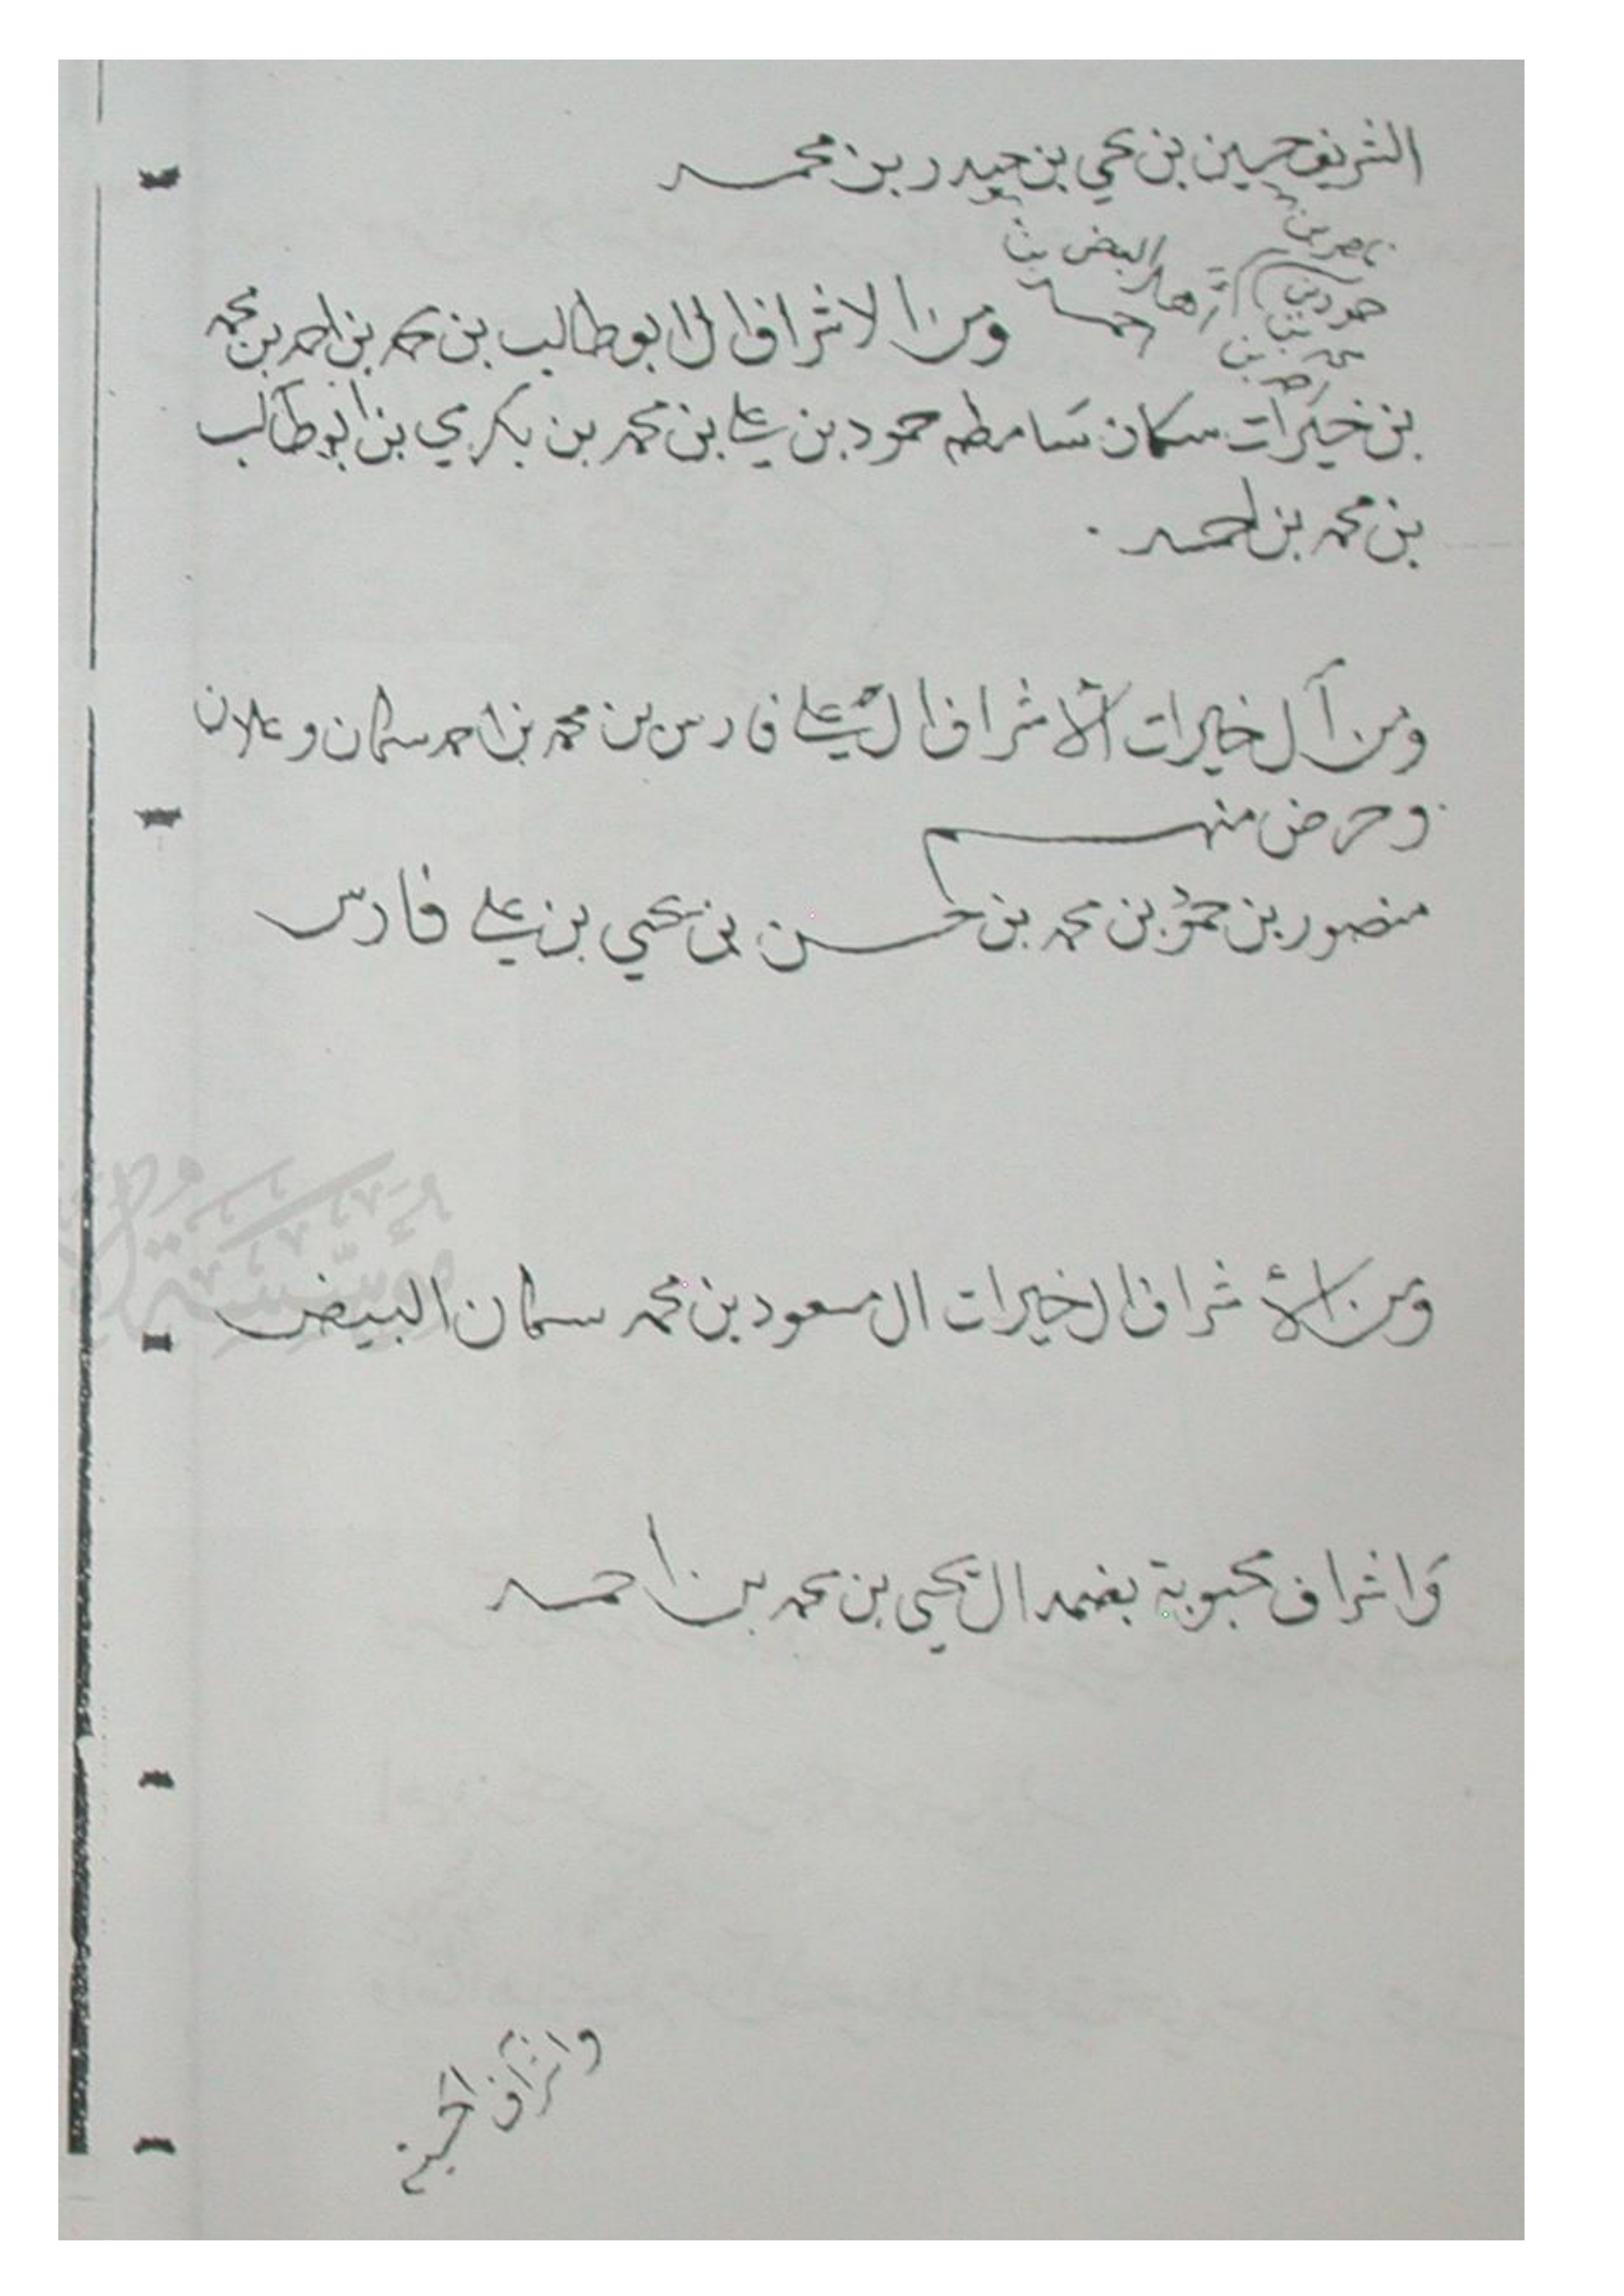 الشريف حسين بن يحي بن حيدر بن محمد
ناصر بن
حمود بن
محمد بن
أهل البيض بن
احمد
ومن الاشراف ال ابو طالب بن محمد بن احمد بن محمد
بن خيرات سكان سامطه حمود بن علي بن محمد بن بكري بن ابو طالب
بن محمد بن احمد .
ومن آل خيرات الأشراف ال علي فارس بن محمد بن احمد سكان وعلان
وحرض منهم
منصور بن حمود بن محمد بن حسن بن يحيي بن علي فارس
ومن الأشراف الخيرات ال مسعود بن محمد سكان البيض
واشراف محبوبة بضمد ال يحيى بن محمد بن احمد
واشراف
مؤسسة